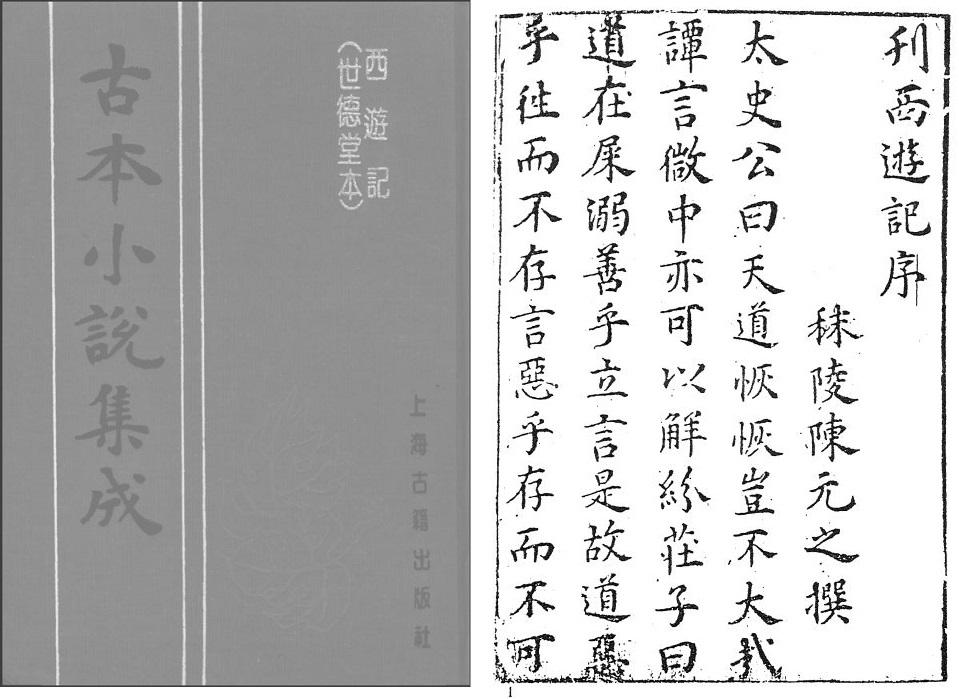 古本小說集成
西遊記
（世德堂本）
上海古籍出版社
刊西遊記序
秣陵陳元之撰
太史公曰天道恢恢豈不大哉
譚言微中亦可以解紛莊子曰
道在屎溺善乎立言是故道惡
乎往而不存言惡乎存而不可
1